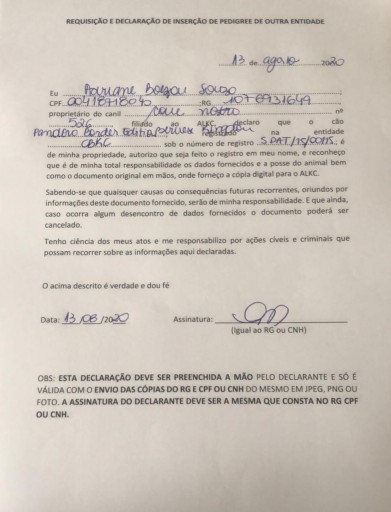 REQUISIÇÃO E DECLARAÇÃO DE INSERÇÃO DE PEDIGREE DE OUTRA ENTIDADE
13 de agosto 2020
Eu Adriane Souza
CPF 00418718040 ;RG 1076931649
proprietário do canil nº
526 filiado ao ALKC, declaro que o cão
registrado na entidade
CBKC sob o número de registro ; é
de minha propriedade, autorizo que seja feito o registro em meu nome, e reconheço
que é de minha total responsabilidade os dados fornecidos e a posse do animal bem
como o documento original em mãos, onde forneço a cópia digital para o ALKC.
Sabendo-se que quaisquer causas ou consequências futuras recorrentes, oriundos por
informações deste documento fornecido, serão de minha responsabilidade. E que ainda,
caso ocorra algum desencontro de dados fornecidos o documento poderá ser
cancelado.
Tenho ciência dos meus atos e me responsabilizo por ações cíveis e criminais que
possam recorrer sobre as informações aqui declaradas.
O acima descrito é verdade e dou fé
Data: 13/08/2020 Assinatura:
(Igual ao RG ou CNH)
OBS: ESTA DECLARAÇÃO DEVE SER PREENCHIDA A MÃO PELO DECLARANTE E SÓ É
VÁLIDA COM O ENVIO DAS CÓPIAS DO RG E CPF OU CNH DO MESMO EM JPEG, PNG OU
FOTO. A ASSINATURA DO DECLARANTE DEVE SER A MESMA QUE CONSTA NO RG CPF
OU CNH.